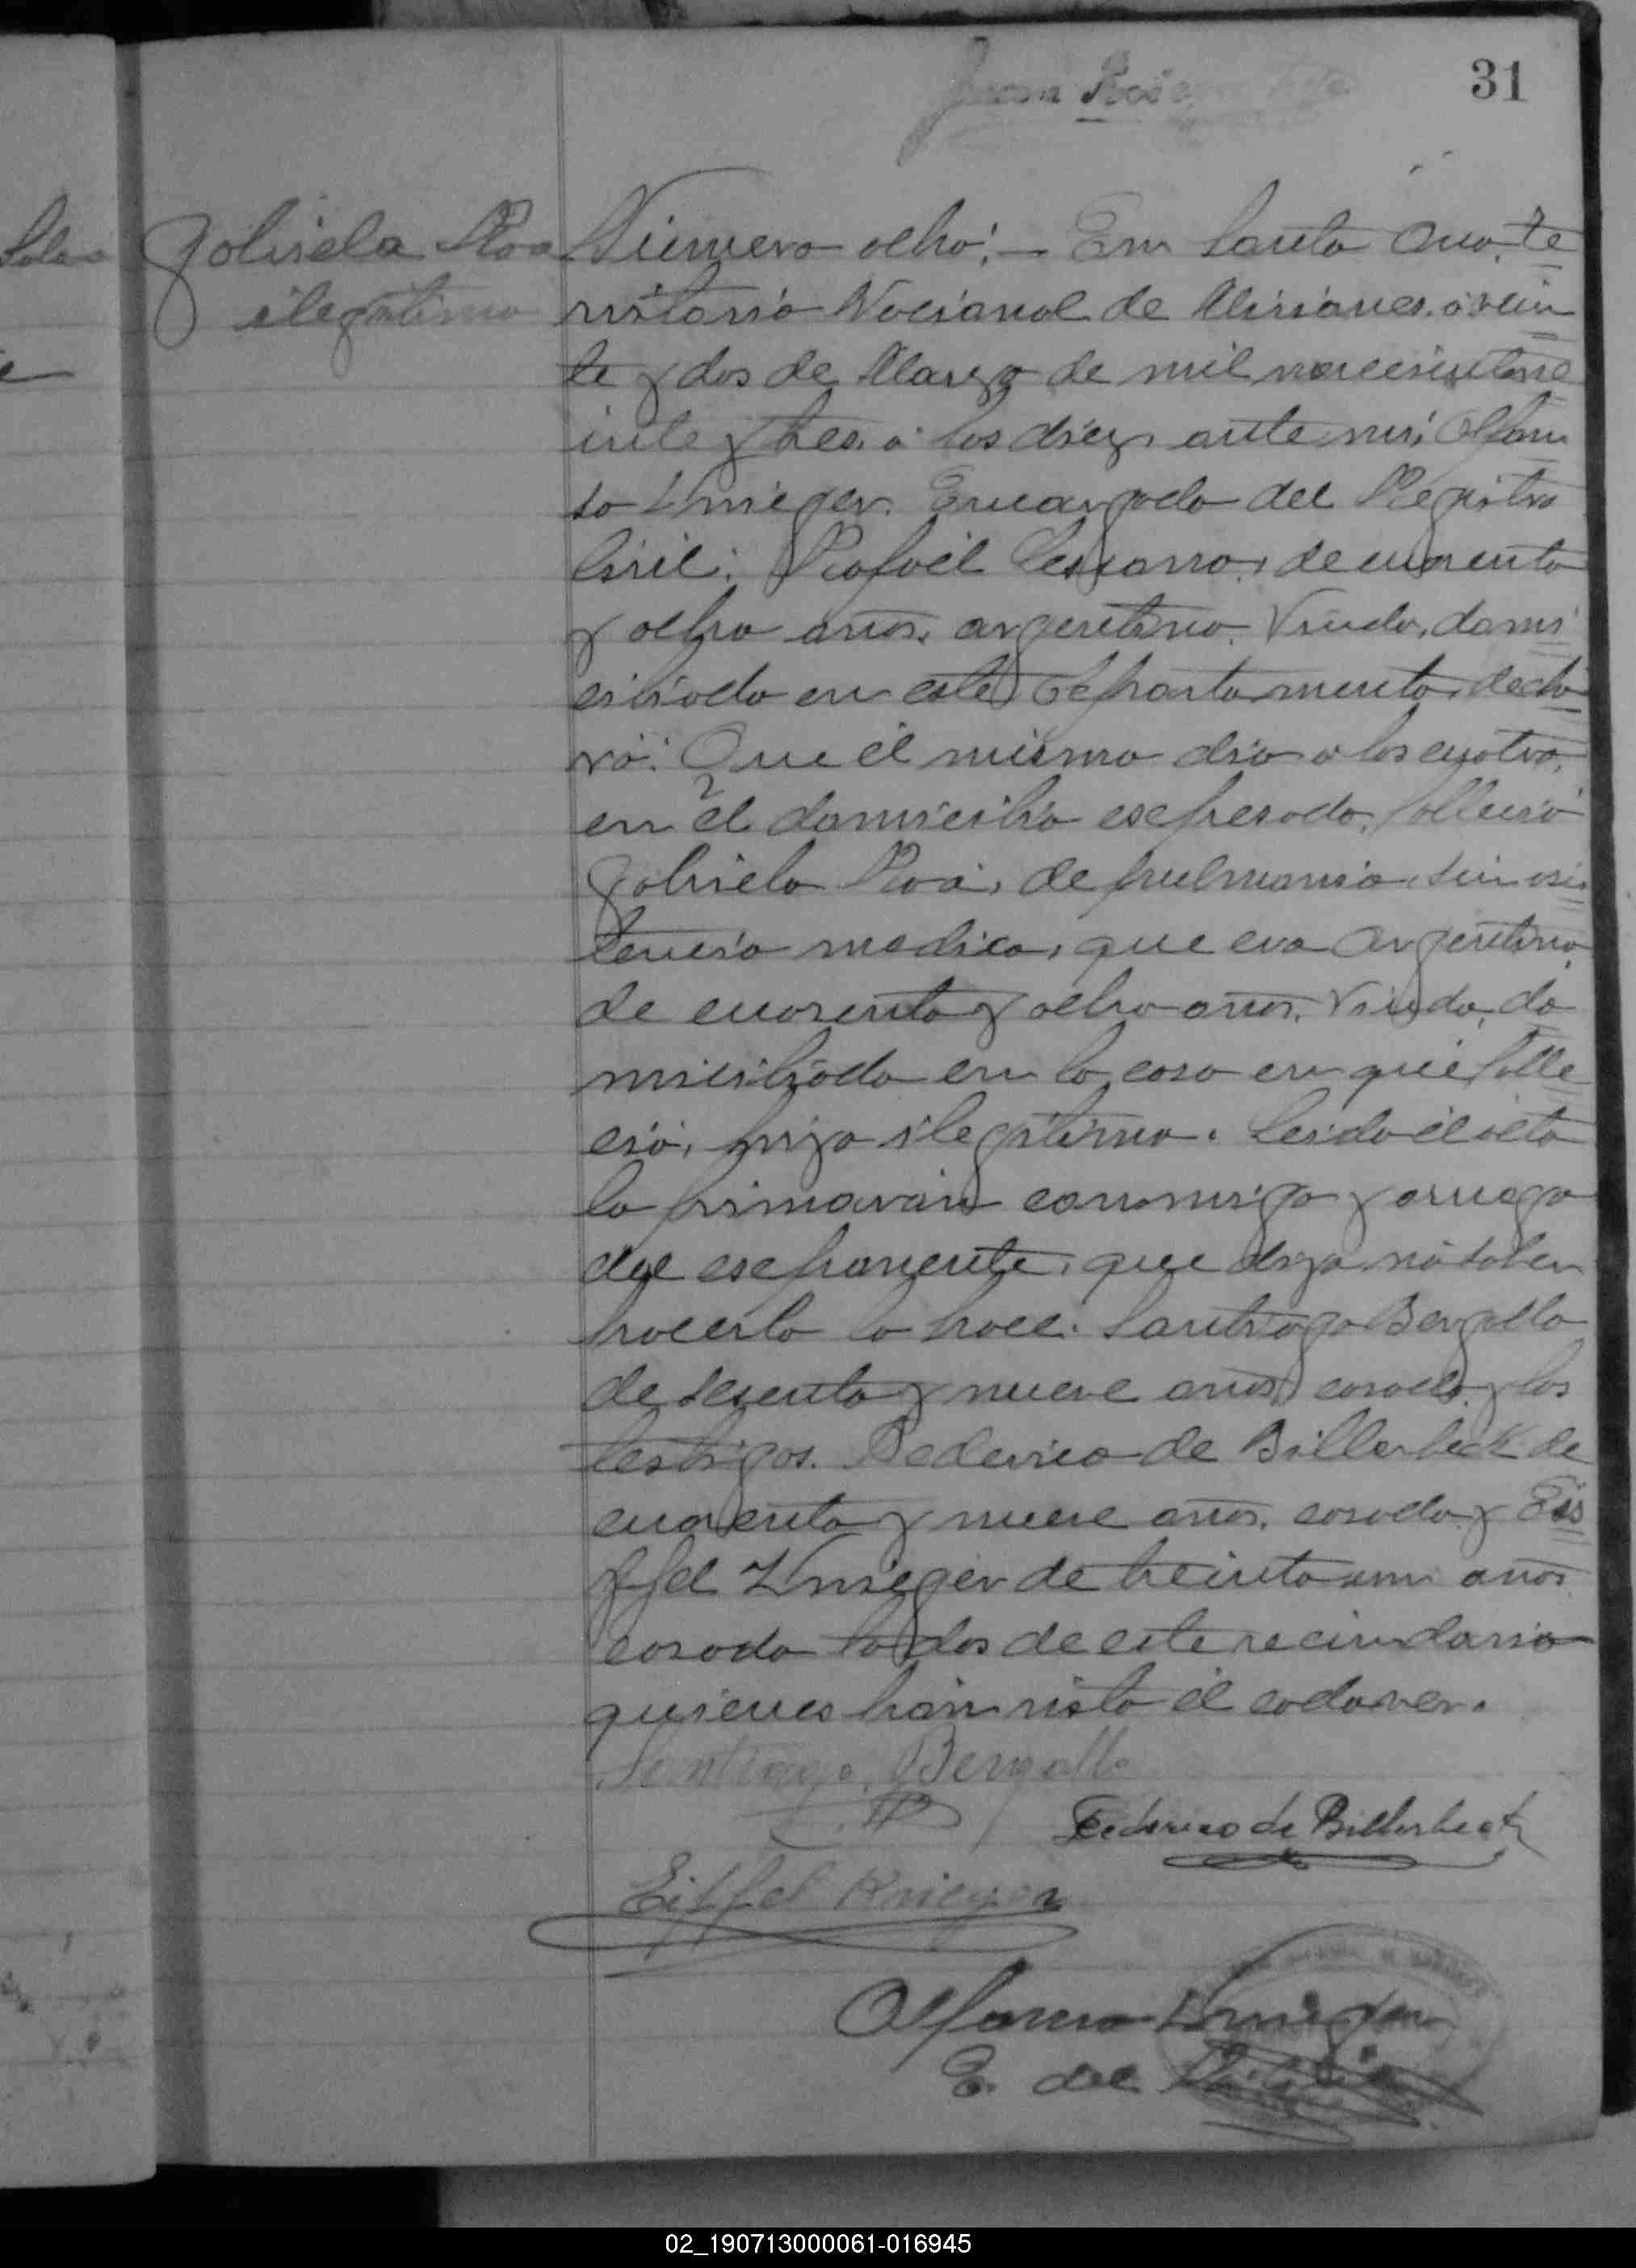 31
Juan
Gabriela Roa
ilegitima
Número ocho: - En Santa Ana, te
rritorio Nacional de Misiones, á vein
te y dos de Marzo de mil novecientos ve
inte y tres, a las diez, ante mi, Alfon
so Krieger, Encargado del Registro
Civil; Rafaél Lescano, de cuarenta
y ocho años, argentino, Viudo, domi
ciliado en este Departamento, decla
ró: Que él mismo dia a las cuatro,
en él domicilio espresado, falleció
Gabriela Roa, de pulmonia, sin asis
tencia medica, que era Argentina,
de cuarenta y ocho años, Viuda, do
miciliada en la casa en que falle
ció, hija ilegitima. Leida él acta
la firmaván conmigo y a ruego
del esponente, que dijo nó saber
hacerlo lo hace: Santiago Bergallo
de sesenta y nueve años, casado, y los
testigos. Federico de Billerbeck de
cuarenta y nueve años, casado, y Eis
ffel Krieger de treinta un años
casado todos de este vecindario
quienes hán visto él cadaver.
Santiago Bergallo
Federico de Billerbeck
Eiffel Krieger
Alfonso Krieger
E. del
02_190713000061-016945